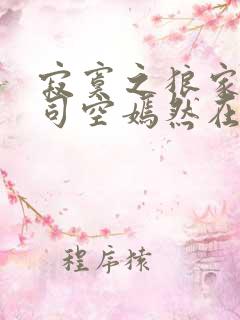 寂寞之狼家
司空嫣然在
程序猿